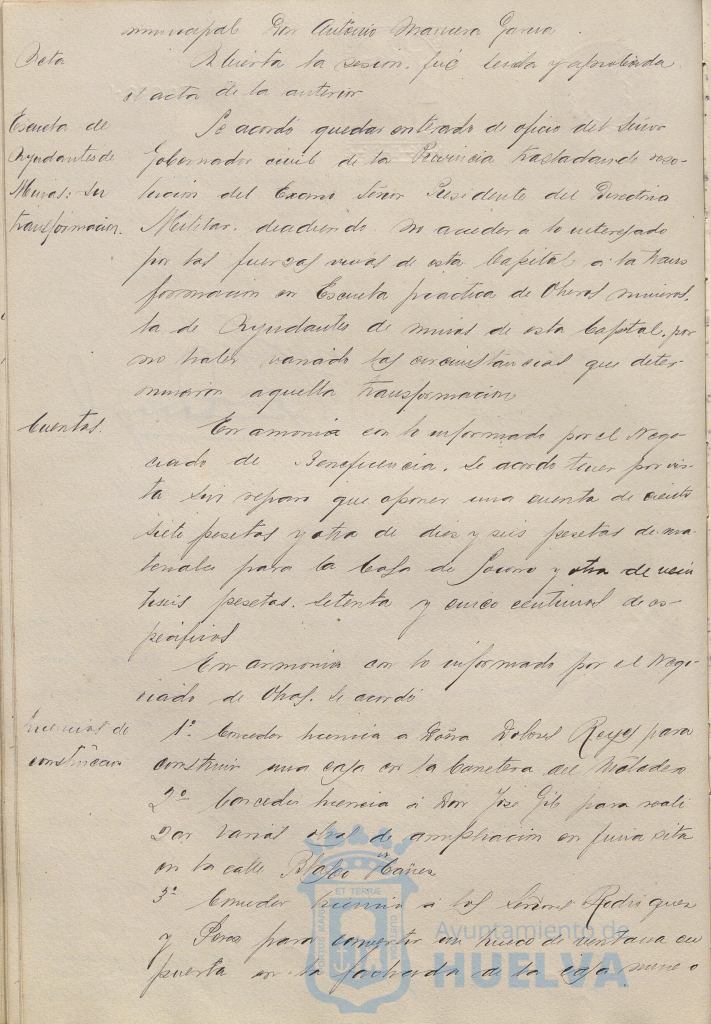 municipal Don Antonio Mancera Garcia
Acta
Abierta la sesion, fué leida y aprobada
el acta de la anterior
Escuela de
Ayudantes de
Minas: su
transformacion.
Se acordó quedar enterado de oficio del Señor
Gobernador civil de la Provincia trasladando reso-
lucion del Excmo Señor Presidente del Directorio
Militar, deciendo no acceder a lo interesado
por las fuerzas vivas de esta Capital a la trans
formacion en Escuela practica de Obreros mineros,
la de Ayudantes de minas de esta Capital, por
no haber variado las circunstancias que deter-
minaron aquella transformacion
Cuentas.
En armonia con lo informado por el Nego-
ciado de Beneficencia, se acordo tener por vis-
ta sin reparo que oponer una cuenta de ciento
siete pesetas y otra de diez y seis pesetas de ma-
teriales para la Casa de Socorro y otra de vein
tiseis pesetas, setenta y cinco centimos de es-
pecificos
En armonia con lo informado por el Nego-
ciado de Obras, se acordó
Licencias de
construccion
1º Conceder licencia a Doña Dolores Reyes para
construir una casa en la Carretera del Matadero
2º Conceder licencia á Don José Gil para reali
zar varias obras de ampliacion en finca sita
en la calle Blasco Ibáñez
3º Conceder licencia á los Señores Rodriguez
y Perez para convertir un hueco de ventana en
puerta en la fachada de la casa numero
Ayuntamiento de
HUELVA